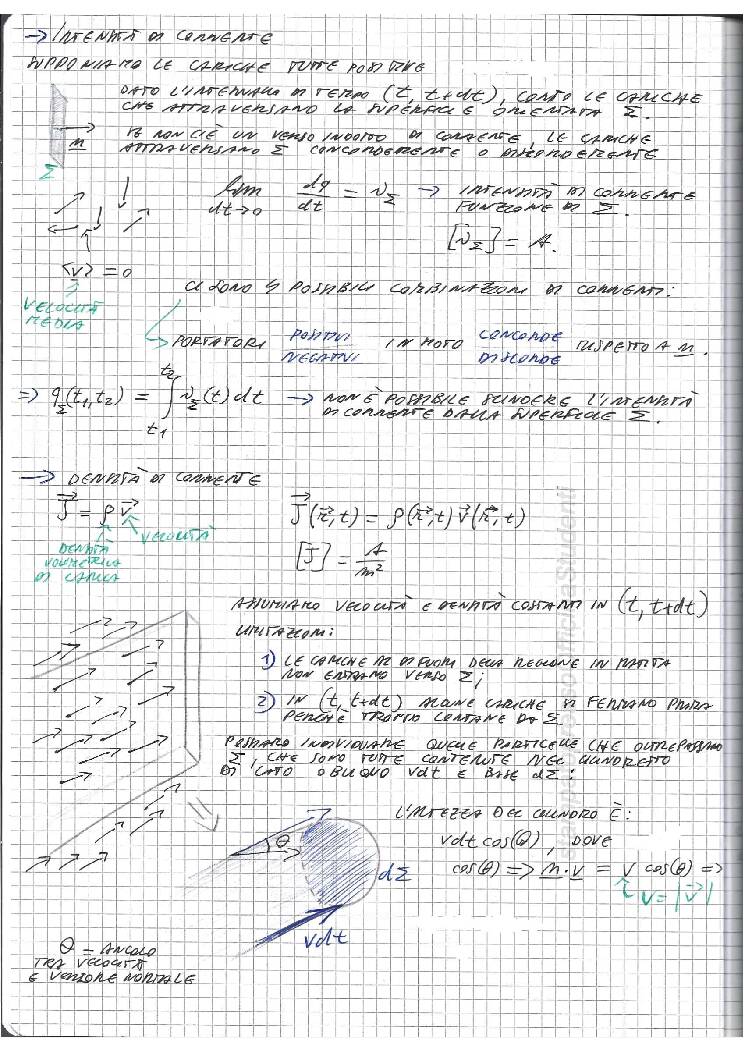 → INTENSITÀ DI CORRENTE
SUPPONIAMO LE CARICHE TUTTE POSITIVE
DATO L'INTERVALLO DI TEMPO (t, t+dt), CONTO LE CARICHE
CHE ATTRAVERSANO LA SUPERFICIE ORIENTATA Σ.
SE NON C'È UN VERSO INDOTTO DI CORRENTE, LE CARICHE
ATTRAVERSANO Σ CONCORDEMENTE O DISCORDEMENTE
n
Σ
lim dt→0 dq/dt = i_Σ → INTENSITÀ DI CORRENTE
FUNZIONE DI Σ.
[i_Σ] = A.
⟨v⟩ = 0
VELOCITÀ
MEDIA
CI SONO 4 POSSIBILI COMBINAZIONI DI CORRENTI:
PORTATORI POSITIVI IN MOTO CONCORDE RISPETTO A n.
NEGATIVI DISCORDE
⇒ q_Σ(t1,t2) = ∫_{t1}^{t2} i_Σ(t) dt → NON È POSSIBILE SCINDERE L'INTENSITÀ
DI CORRENTE DALLA SUPERFICIE Σ.
→ DENSITÀ DI CORRENTE
J⃗ = ρ v⃗
VELOCITÀ
DENSITÀ
VOLUMETRICA
DI CARICA
J⃗(r⃗,t) = ρ(r⃗,t) v⃗(r⃗,t)
[J] = A/m²
ASSUMIAMO VELOCITÀ E DENSITÀ COSTANTI IN (t, t+dt)
LIMITAZIONI:
1) LE CARICHE AL DI FUORI DELLA REGIONE IN MATITA
NON ENTRANO VERSO Σ;
2) IN (t, t+dt) ALCUNE CARICHE SI FERMANO PRIMA
PERCHÉ TROPPO LONTANE DA Σ
POSSIAMO INDIVIDUARE QUELLE PARTICELLE CHE OLTREPASSANO
Σ, CHE SONO TUTTE CONTENUTE NEL CILINDRETTO
DI LATO OBLIQUO vdt E BASE dΣ:
L'ALTEZZA DEL CILINDRO È:
vdt cos(θ), DOVE
cos(θ) ⇒ n · v = v cos(θ) ⇒
v = |v⃗|
θ
dΣ
vdt
θ = ANGOLO
TRA VELOCITÀ
E VERSORE NORMALE